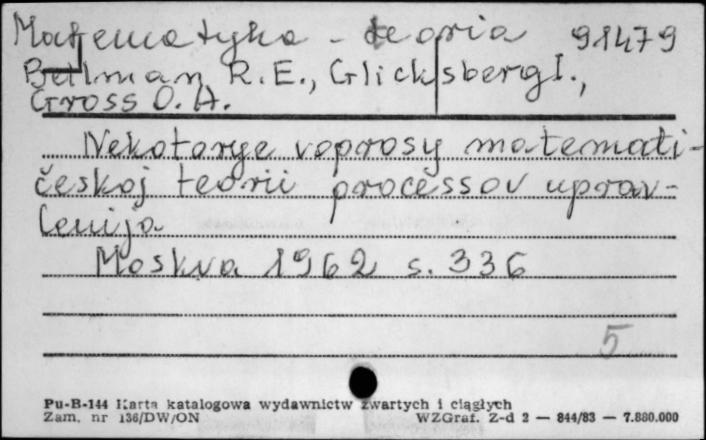 Matematyka - teoria 91479
Bellman R.E., Glicksberg I.,
Gross O.A.
Nekotorye voprosy matemati-
českoj teorii processov uprav-
lenija
Moskva 1962 s. 336
5
Pu-B-144 Karta katalogowa wydawnictw zwartych i ciągłych
Zam. nr 136/DW/ON WZGraf. Z-d 2 — 844/83 — 7.880.000